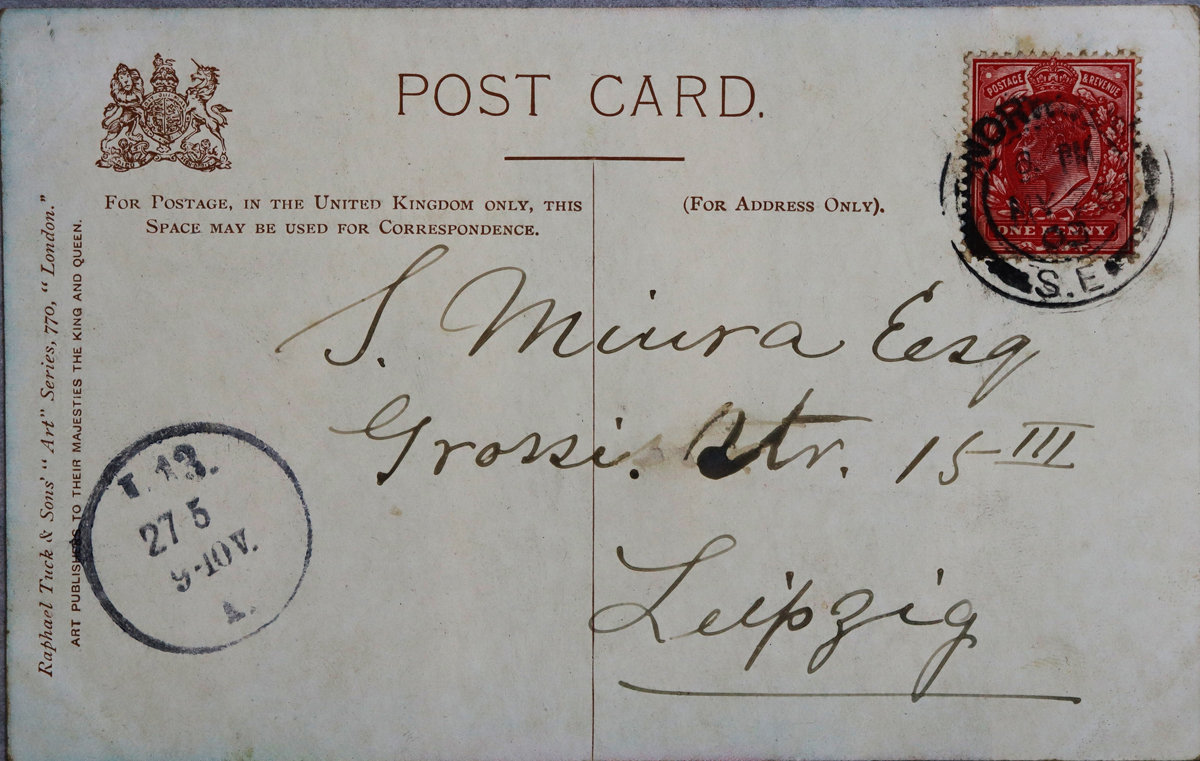 POST CARD.
FOR POSTAGE, IN THE UNITED KINGDOM ONLY, THIS
SPACE MAY BE USED FOR CORRESPONDENCE.
(FOR ADDRESS ONLY).
POSTAGE & REVENUE
ONE PENNY
PM
S.E
S. Miura Esq
Grossi. Str. 15 III
Leipzig
13.
27 5
9-10V.
A.
Raphael Tuck & Sons' "Art" Series, 770, "London."
ART PUBLISHERS TO THEIR MAJESTIES THE KING AND QUEEN.